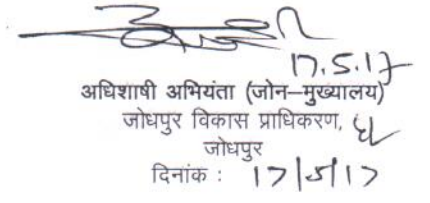 17.5.17
अधिशाषी अभियंता (जोन–मुख्यालय)
जोधपुर विकास प्राधिकरण,
जोधपुर
दिनांक : 17/5/17